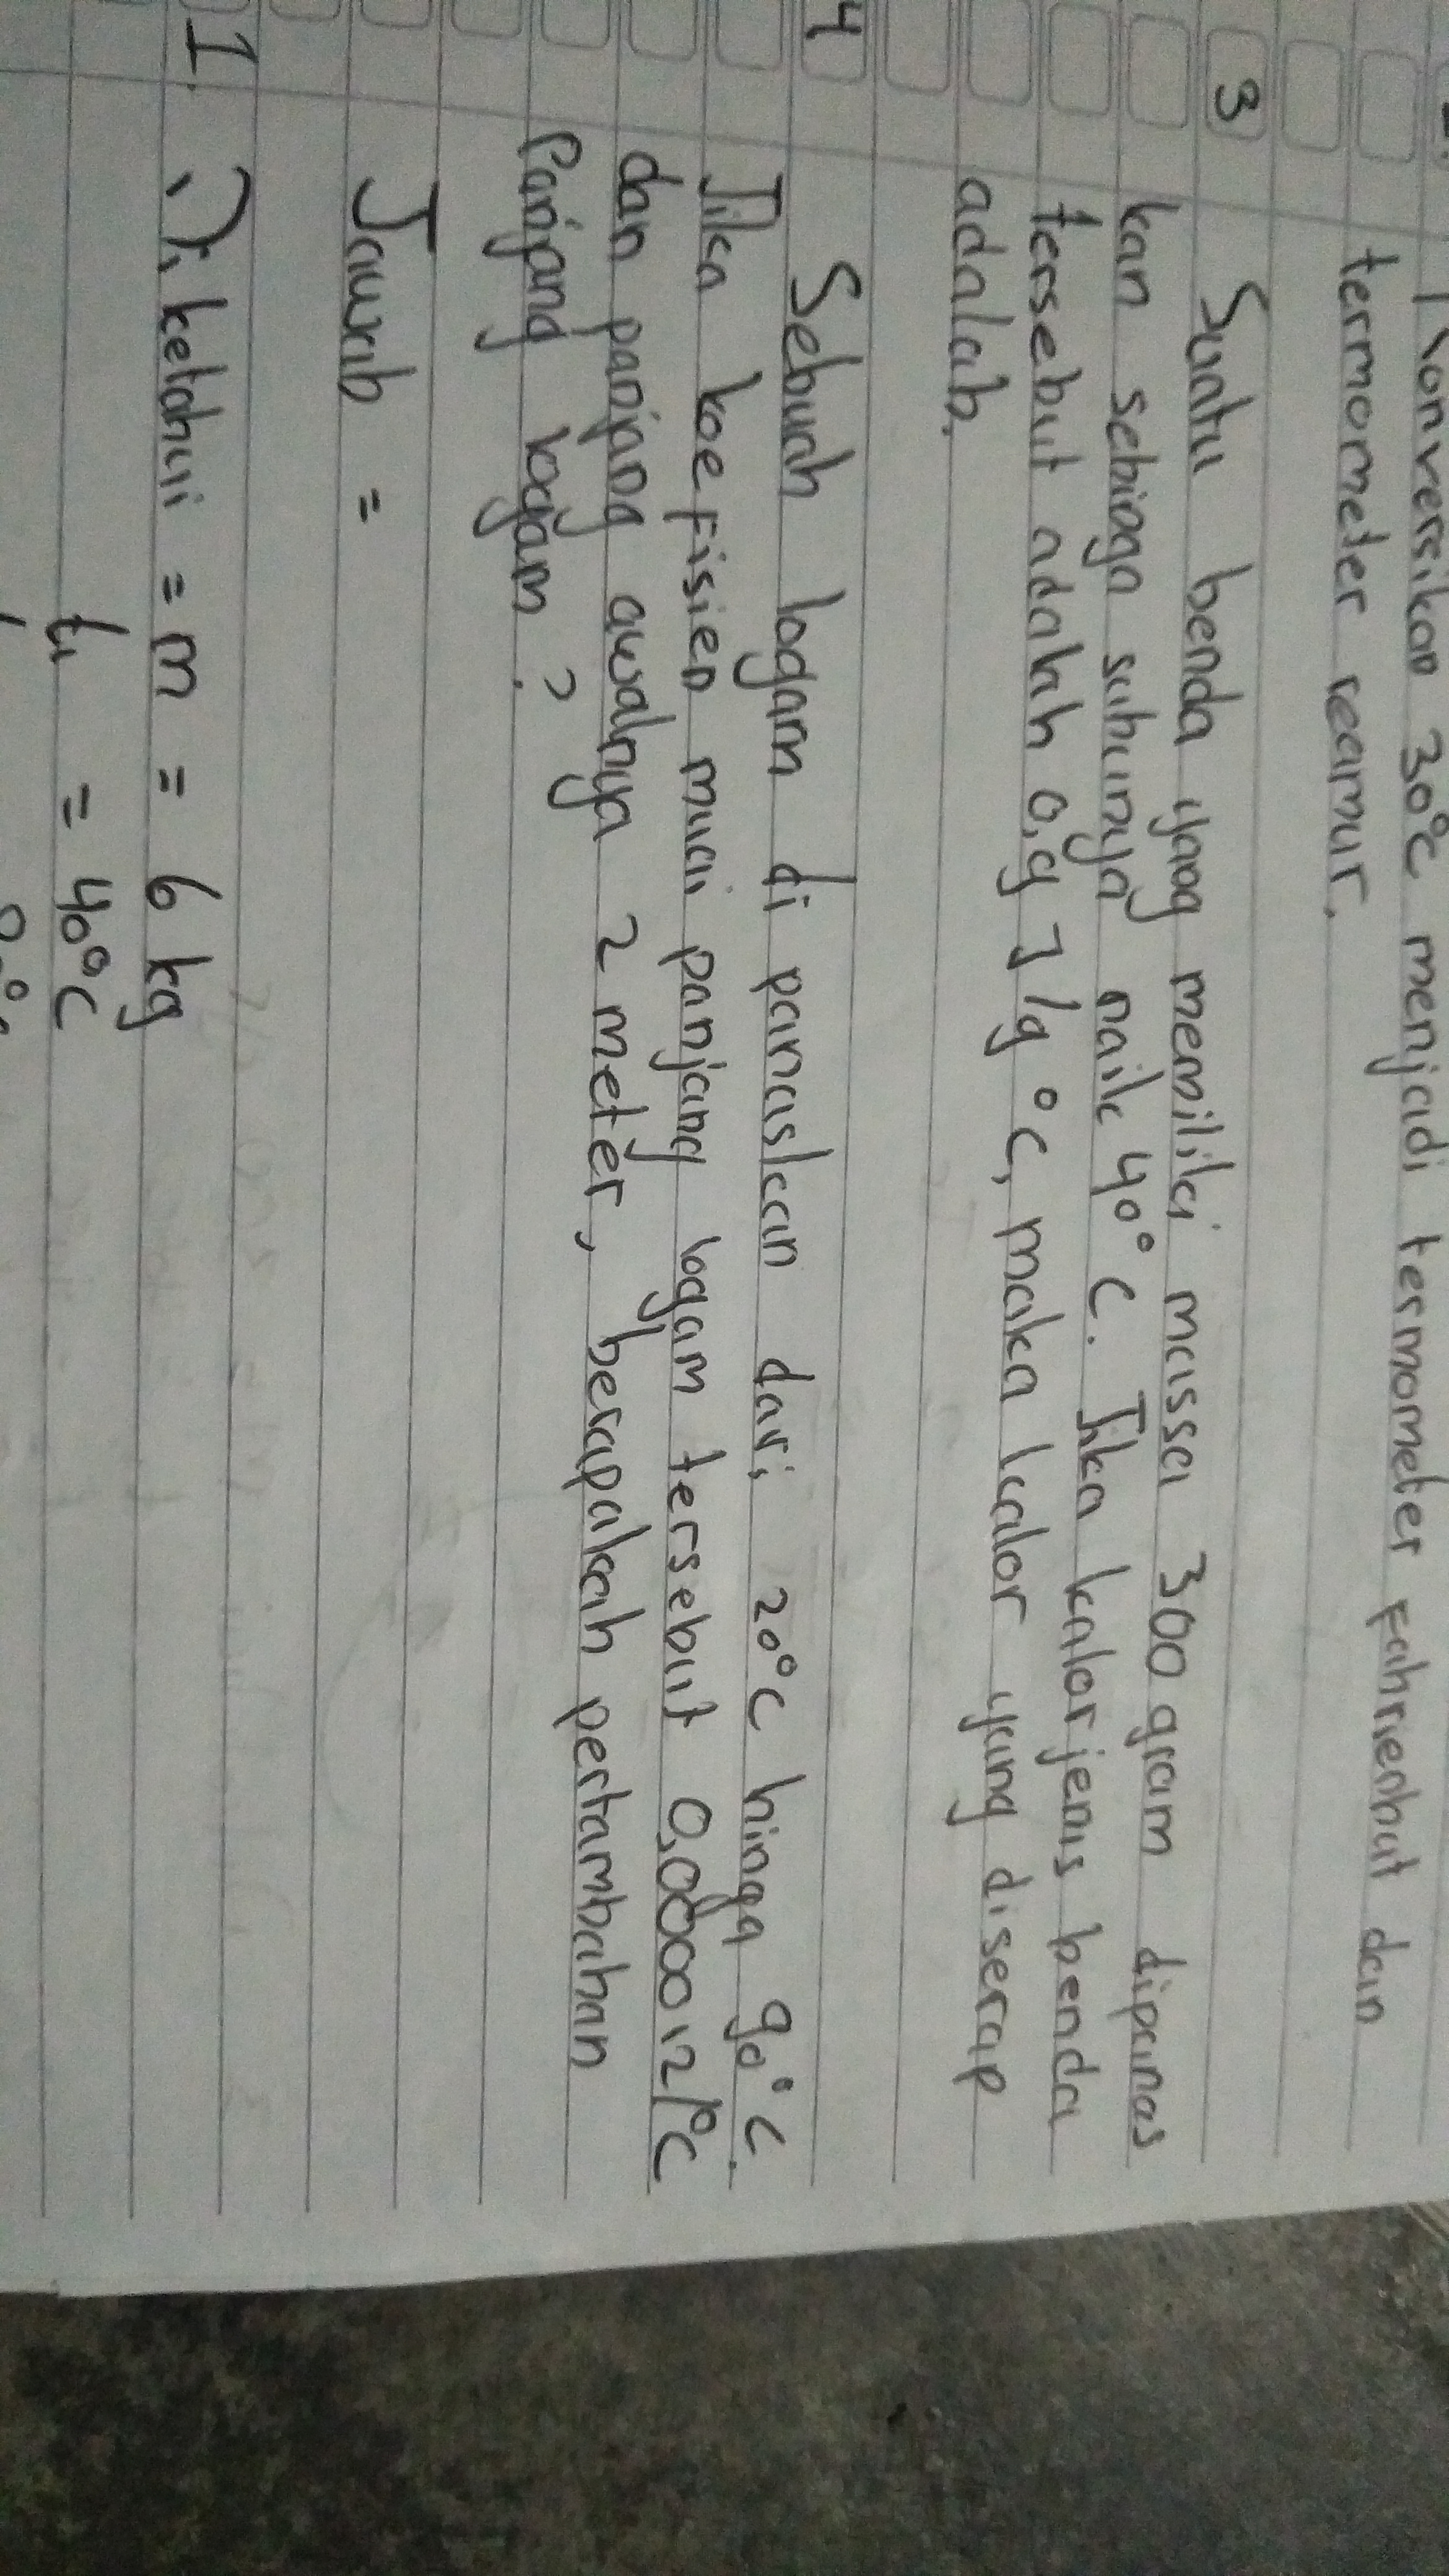 Konversikan 30°C menjadi termometer Fahrienhut dan
termometer reamur.
3 Suatu benda yang memiliki massa 300 gram dipanas
kan sehinga suhunya naik 40°C. Jika kalor jenis benda
tersebut adalah 0,9 J/g °C, maka kalor yang diserap
adalah.
4 Sebuah logam di panaskan dari 20°C hinga 90°C.
Jika koefisien muai panjang logam tersebut 0,000012/°C
dan panjang awalnya 2 meter, berapakah pertambahan
Panjang logam?
Jawab =
I. Diketahui = m = 6 kg
t1 = 40°C